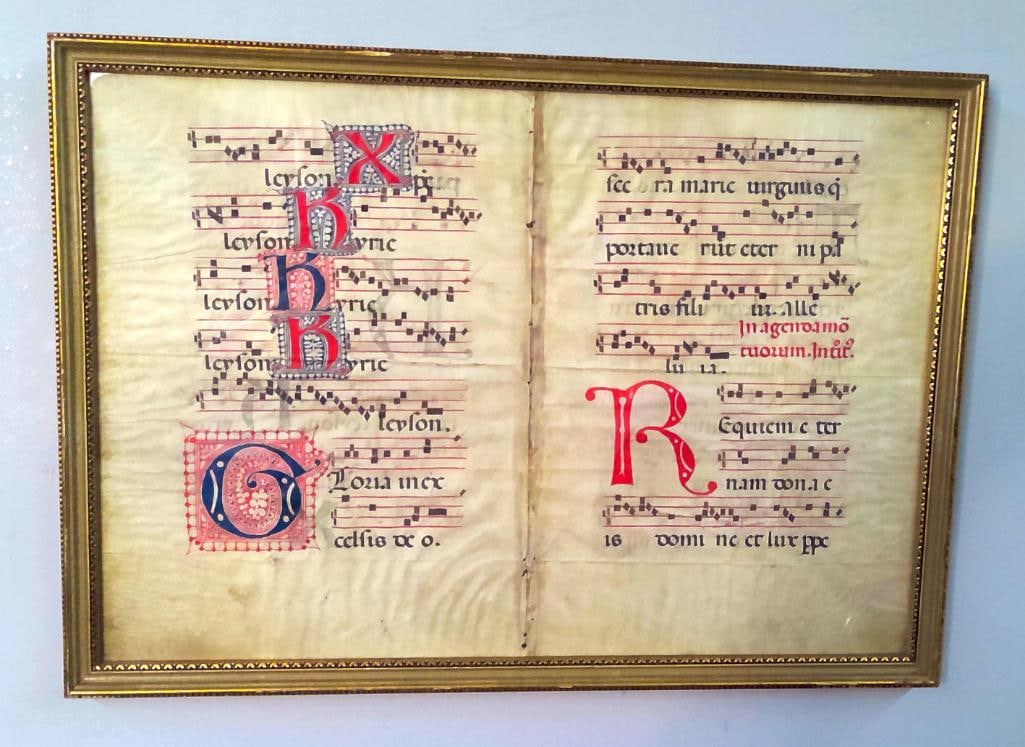 leyson Xp̄e
leyson Kyrie
leyson Kyrie
leyson Kyrie
leyson.
Gloria in ex
celsis de o.
marie uirginis q̄
portaue rūt eter ni pa
tris fili
um. Alle
In agenda mō
lu ia.
tuorum. Intiť.
REquiem e ter
nam dona e
is domi ne et lux ꝑpe